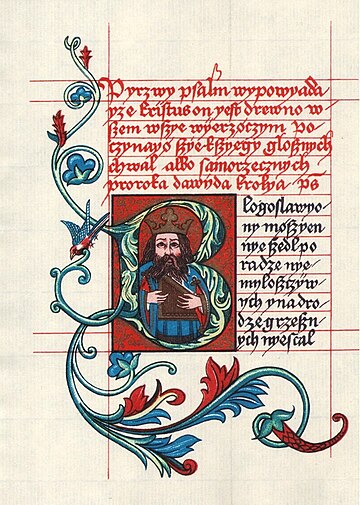 Pyrzwy psalm wypowyada
yze kristus on yest drewno w
szem wszye wyerzoczym Po
czynayo szye kszyegy glosznych
chwal albo samorzecznych
proroka dawyda krolya Ps
B
logoslawyo
ny moszyen
nye szedl po
radze nye
mylosztyw
ych y na dro
dze grzeszn
ych nye stal